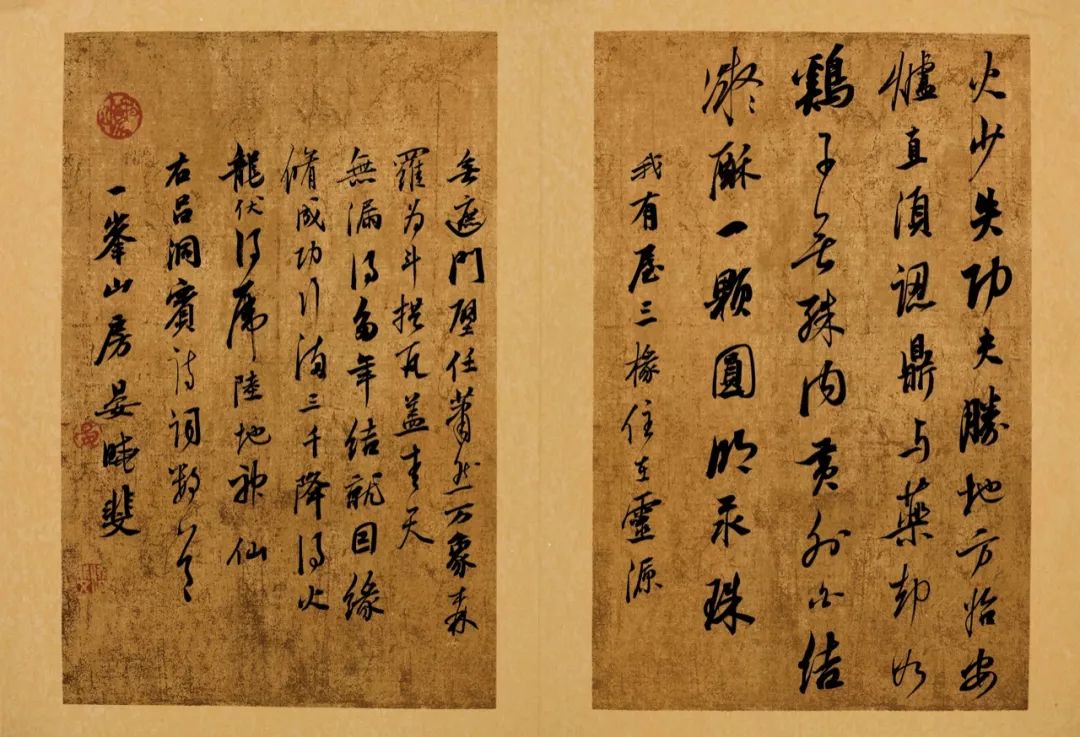 火少失功夫勝地方始安
爐直須認鼎与藥却如
鷄子無殊内黄外白結
凝酥一顆圓明永珠
我有屋三椽住在靈源
無遮門壁任蕭然万象森
羅为斗拱瓦蓋青天
無漏得多年結就因緣
脩成功行滿三千降得火
龍伏得虎陸地神仙
右吕洞賓诗词数首
一峯山房晏曉斐